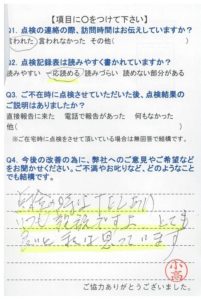 【項目に○をつけて下さい】
Q1. 点検の連絡の際、訪問時間はお伝えしていますか?
言われた 言われなかった その他( )
Q2. 点検記録表は読みやすく書かれていますか?
読みやすい 一応読める 読みづらい 読めない部分がある
Q3. ご不在時に点検させていただいた後、点検結果の
ご説明はありましたか?
直接報告に来た 電話で報告があった 何もなかった
他( )
※ご在宅時に点検をさせて頂いている場合は無回答で結構です。
Q4. 今後の改善の為に、弊社へのご意見やご希望など
をお聞かせください。ご不満やお叱りなど、どのようなこと
でも結構です。
点検の時は TELあり
いつも 親切ですよ とても
良いと私は見っています
小高
ご協力ありがとうございました。